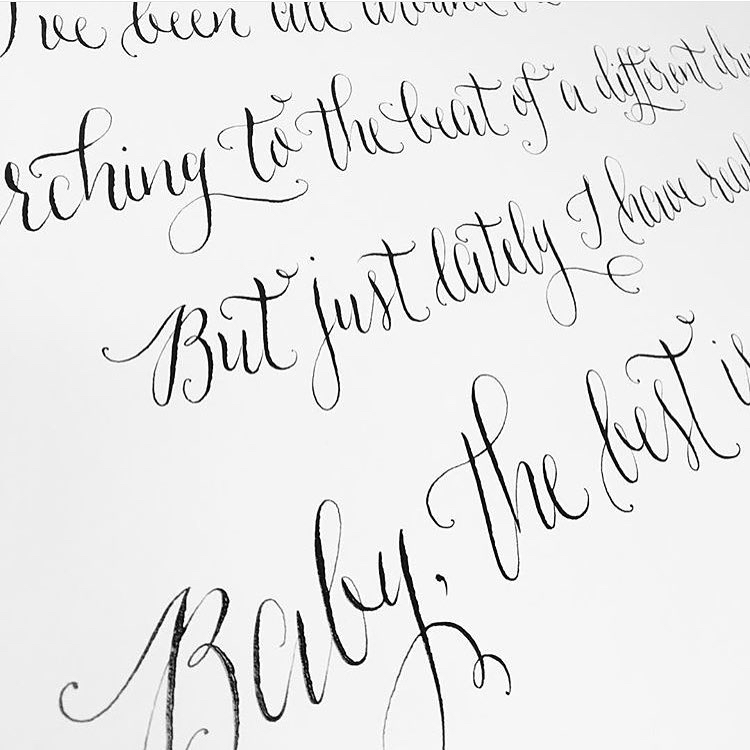 I've been all around
rching to the beat of a different dru
But just lately I have real
Baby, the best is